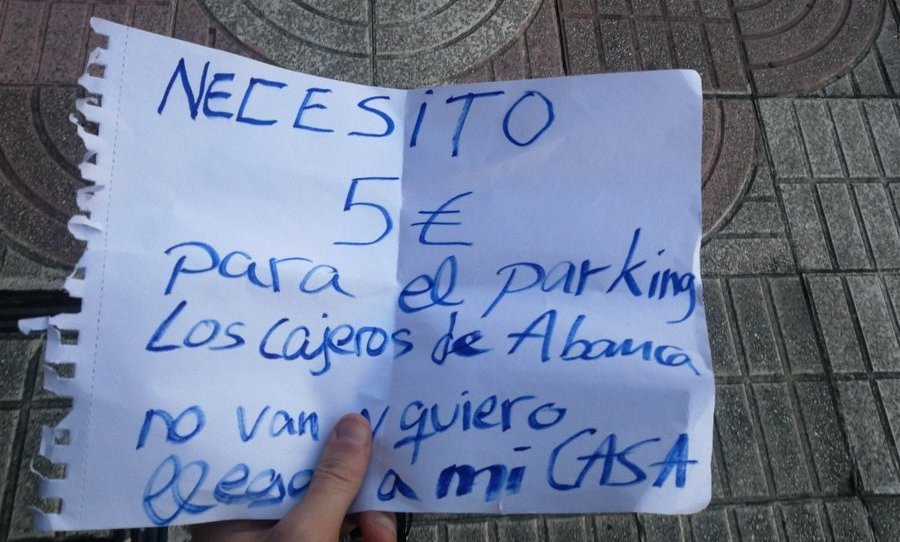 NECESiTO
5 €
para el parking
Los cajeros de Abanca
no van y quiero
llegar a mi CASA